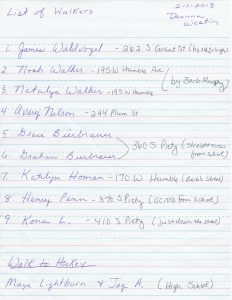 List of Walkers
2-1-2018
Deanna
Westin
1. James Waldvogel - 262 S Grant St (by
2. Noah Walker - 195 W Humble Ave
3. Natalya Walker - 195 W Humble
(by Barb Murphy)
4. Avery Nelson - 244 Plum St
5. Grace Bierbrauer
6. Graham Bierbrauer
360 S Pretz (Straight across from school)
7. Katelyn Homan - 170 W Humble (Barb's street)
8. Henry Penn - 370 S Pretz (across from school)
9. Kona L. - 410 S Pretz (just down the street)
Walk to Hockey
Maya Lightburn & Jay A. (High School)